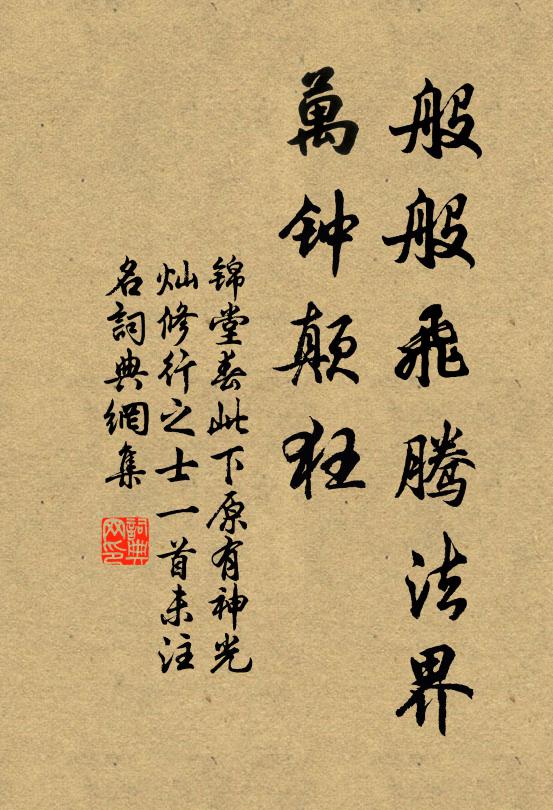 般般飛騰法界
萬钟颠狂
锦堂春此下原有神光
灿修行之士一首未注
名詞典網集
詞典
网印